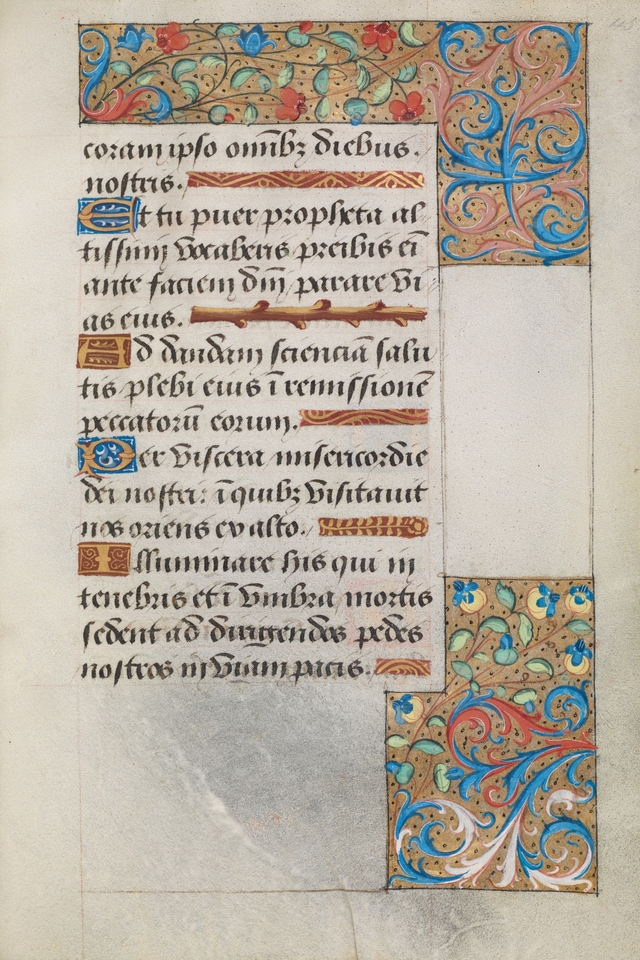 coram ipso omĩbꝫ diebus.
nostris.
Et tu puer propheta al-
tissimi vocaberis preibis eĩ
ante faciem dñi parare vi-
as eius.
Ad dandam scienciã salu
tis plebi eius ĩ remissionẽ
peccatorũ eorum.
Per viscera misericordie
dei nostri: ĩ quibꝫ visitauit
nos oriens ex alto.
Illuminare his qui in
tenebris et ĩ vmbra mortis
sedent ad dirigendos pedes
nostros in viam pacis.